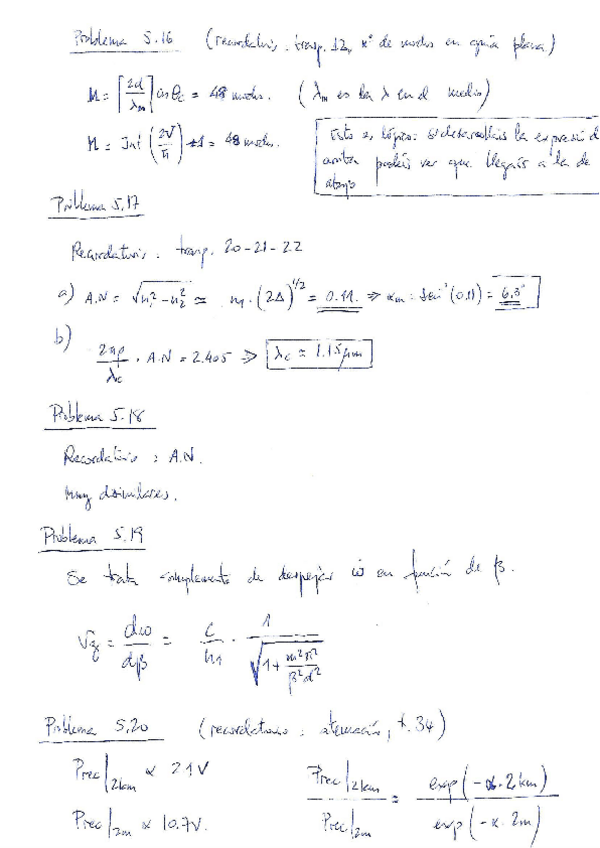 Problema 5.16 (recordatorio: trasp. 12, nº de modos en guía plana)
M = ⌈2d/λm⌉ cos θc = 48 modos. (λm es la λ en el medio)
M = Int (2V/π) +1 = 48 modos.
Esto es lógico: si desarrolláis la expresión de
arriba podéis ver que llegáis a la de
abajo
Problema 5.17
Recordatorio: trasp. 20-21-22
a) A.N = √(n₁² - n₂²) ≃ n₁ · (2Δ)^1/2 = 0.11 ⇒ αm = sen⁻¹ (0.11) = 6.3°
b) 2πρ/λc · A.N = 2.405 ⇒ λc ≃ 1.15 μm
Problema 5.18
Recordatorio: A.N.
Muy disimilares.
Problema 5.19
Se trata simplemente de despejar ω en función de β.
Vg = dω/dβ = c/n₁ · 1/√(1 + m²π²/β²d²)
Problema 5.20 (recordatorio: atenuación, t. 34)
Prec|2km ∝ 2.1V
Prec|2km / Prec|2m = exp(-α·2km) / exp(-α·2m)
Prec|2m ∝ 10.7V.